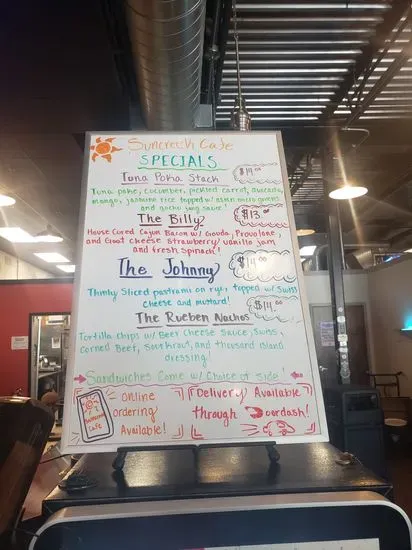 Suncrest Cafe
SPECIALS
Tuna Poka Stack $19.00
Tuna poke, cucumber, pickled carrot, avocado,
mango, jasmine rice topped w/ asian micro greens
and gochu yang sauce!
The Billy $13.00
House Cured Cajun Bacon w/ Gouda, Provolone,
and Goat cheese strawberry/vanilla jam
and fresh spinach!
The Johnny
Thinly Sliced pastrami on rye, topped w/ Swiss
cheese and mustard!
The Rueben Nachos $14.00
Tortilla chips w/ Beer Cheese Sauce, Swiss,
corned Beef, Sourkraut, and thousand island
dressing!
Sandwiches Come w/ Choice of side!
= Online
ordering
Available!
Delivery Available
through Doordash!